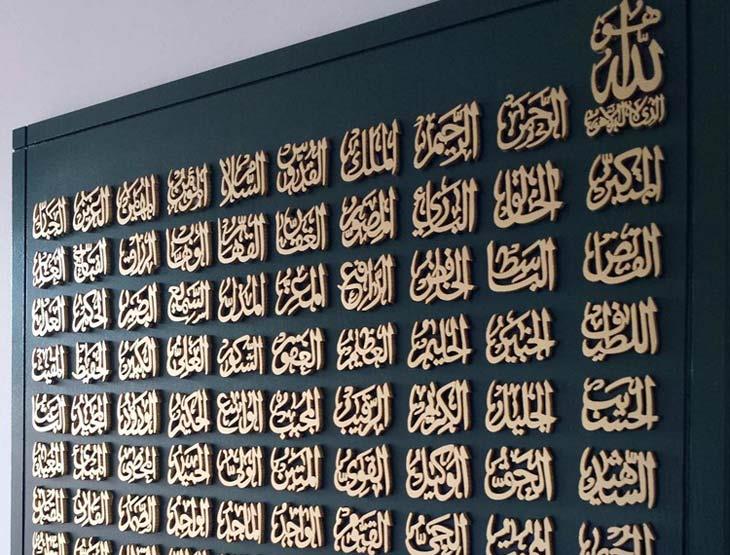 هو
الله
الذي لا إله إلا هو
الرحمن الرحيم الملك القدوس السلام المؤمن المهيمن العزيز الجبار
المتكبر الخالق البارئ المصور الغفار القهار الوهاب الرزاق الفتاح العليم
القابض الباسط الخافض الرافع المعز المذل السميع البصير الحكم العدل
اللطيف الخبير الحليم العظيم الغفور الشكور العلي الكبير الحفيظ المقيت
الحسيب الجليل الكريم الرقيب المجيب الواسع الحكيم الودود المجيد الباعث
الشهيد الحق الوكيل القوي المتين الولي الحميد المحصي المبدئ المعيد
المحيي المميت الحي القيوم الواجد الماجد الواحد الصمد القادر المقتدر